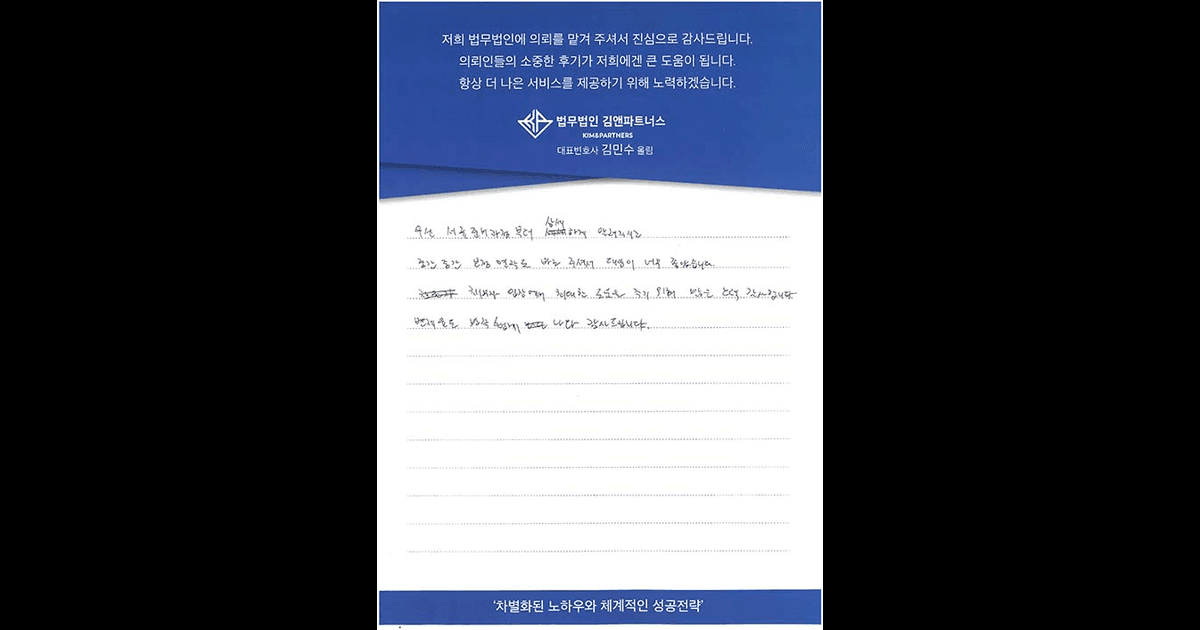 저희 법무법인에 의뢰를 맡겨 주셔서 진심으로 감사드립니다.
의뢰인들의 소중한 후기가 저희에겐 큰 도움이 됩니다.
항상 더 나은 서비스를 제공하기 위해 노력하겠습니다.
법무법인 김앤파트너스
KIM&PARTNERS
대표변호사 김민수 올림
우선 서류준비과정부터 상세하게 알려주시고
중간 중간 보정 연락도 바로 주셔서 대응이 너무 좋았습니다.
채무자 입장에서 최대한 도움을 주기 위해 많은 노력 감사합니다
변제율도 나다 감사드립니다.
'차별화된 노하우와 체계적인 성공전략'